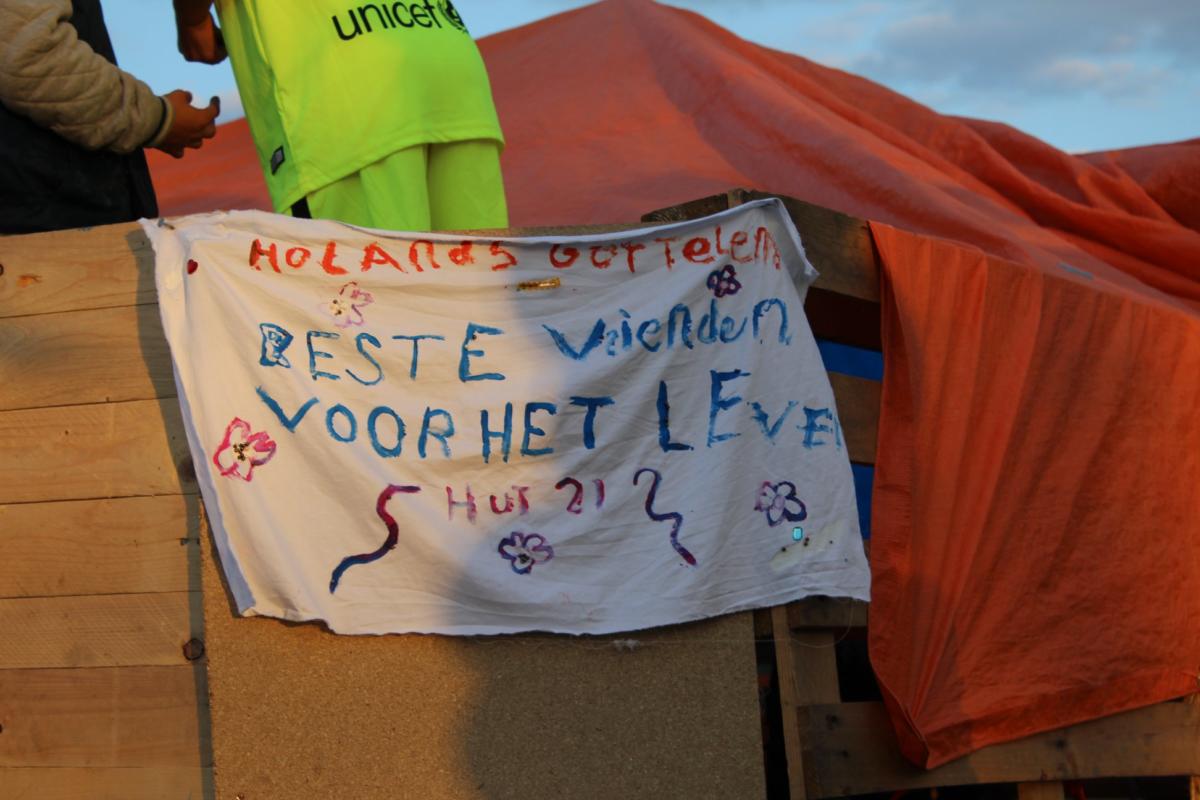 unicef
HOLAnds GOTTelen
BESTE vrienden
VOOR HET LEVEN
HUT 21